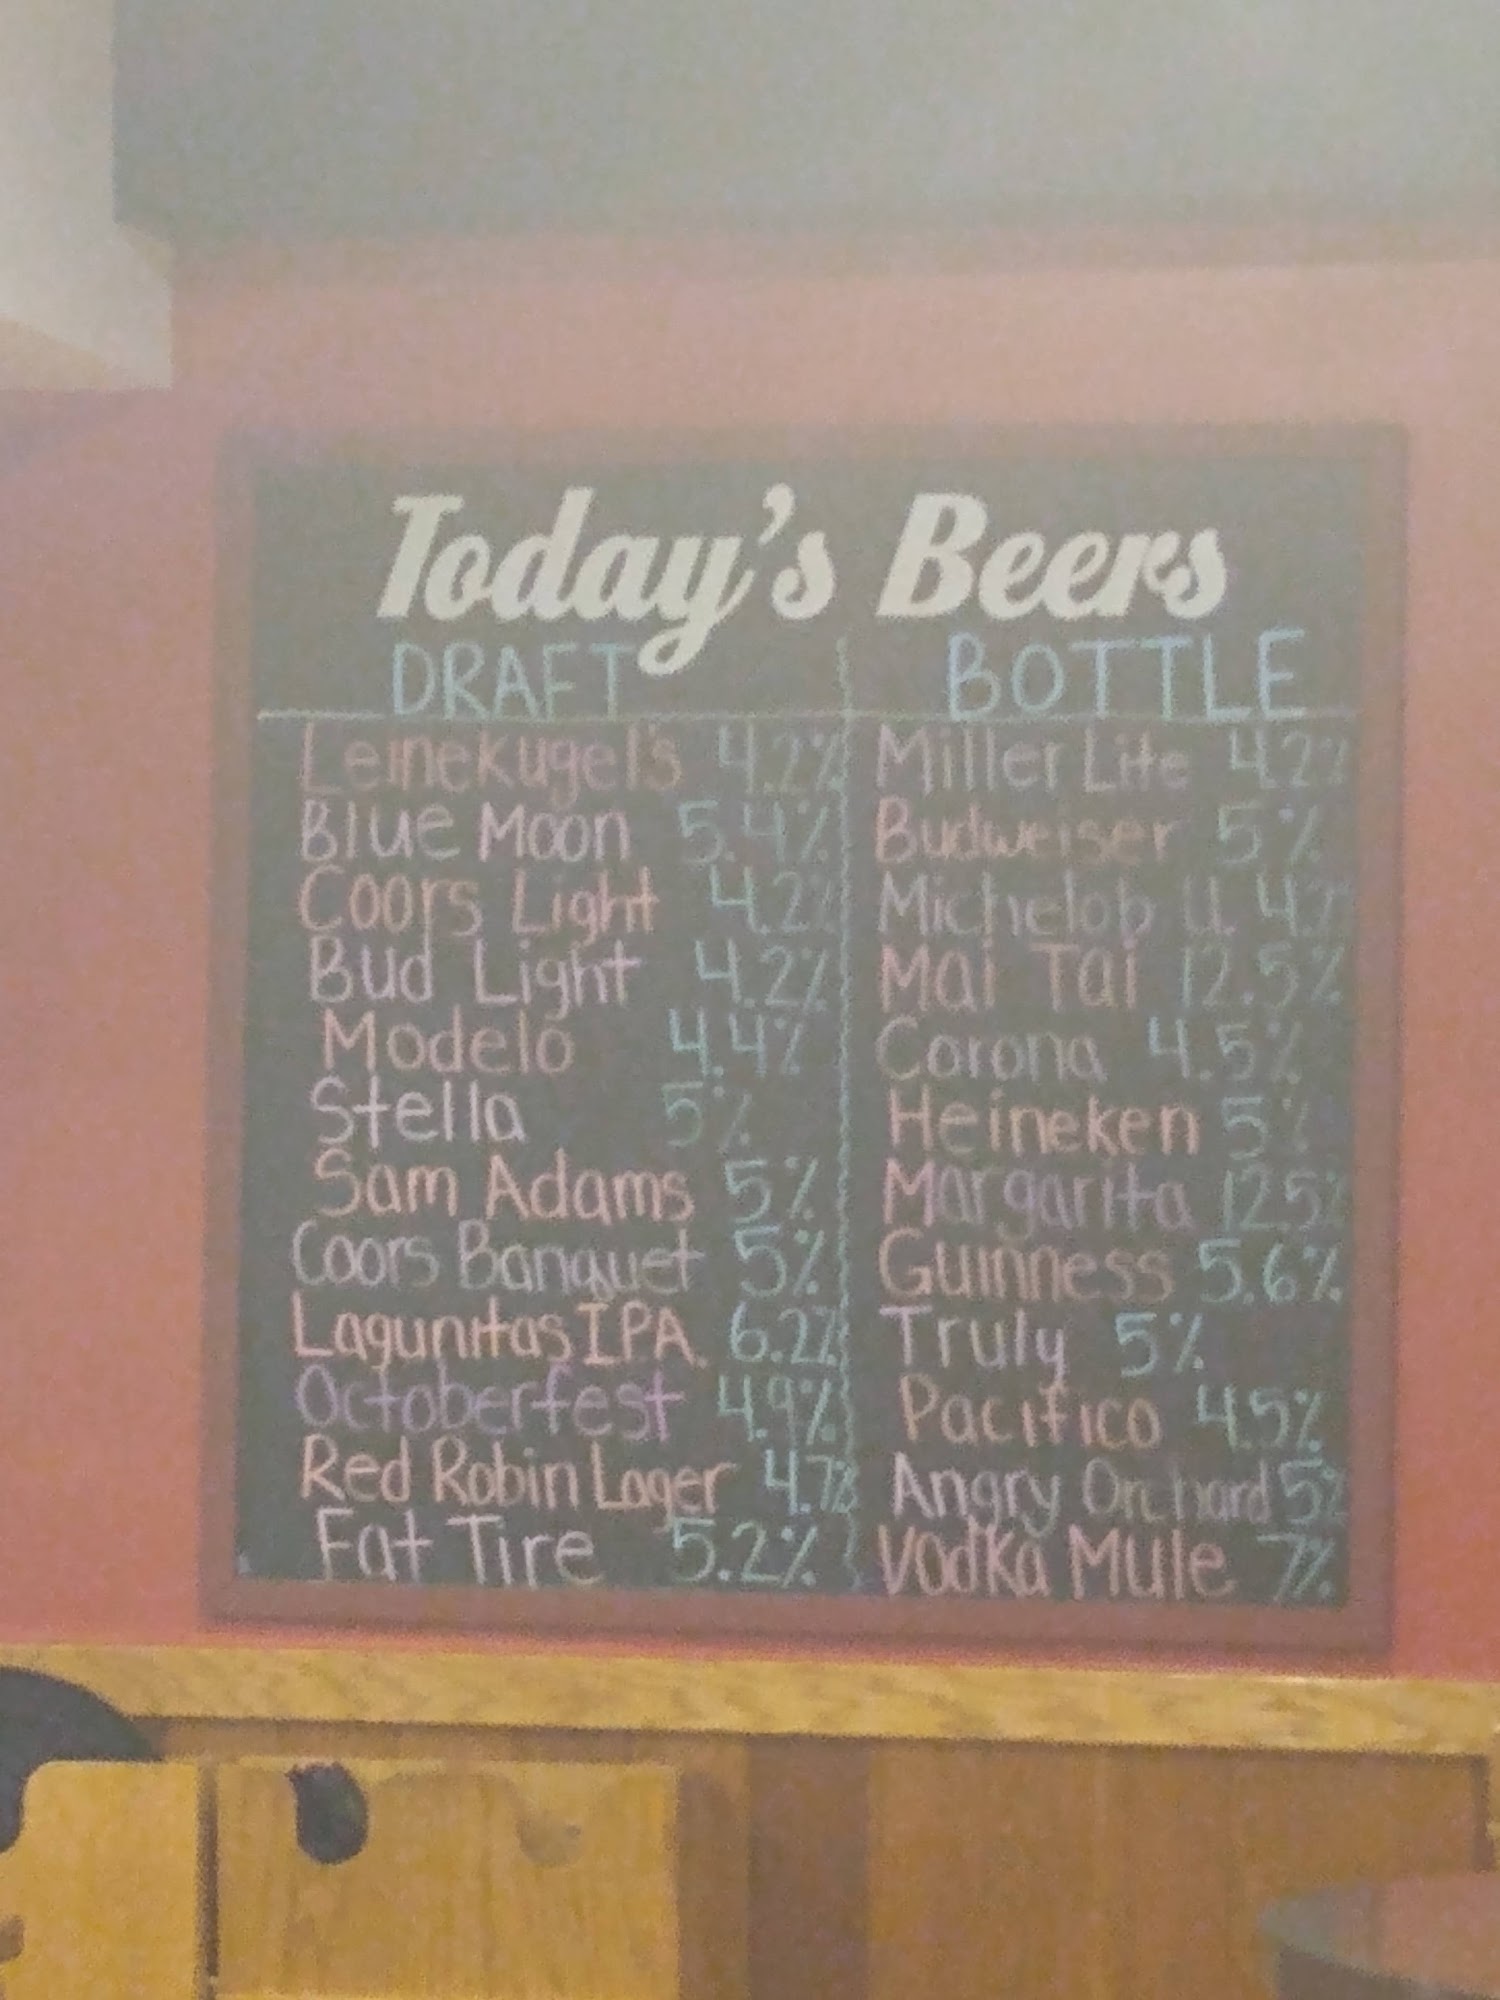 Today's Beers
DRAFT
Leinekugel's 4.2%
Blue Moon 5.4%
Coors Light 4.2%
Bud Light 4.2%
Modelo 4.4%
Stella 5%
Sam Adams 5%
Coors Banquet 5%
Lagunitas IPA. 6.2%
Octoberfest 4.9%
Red Robin Lager 4.7%
Fat Tire 5.2%
BOTTLE
Miller Lite 4.2%
Budweiser 5%
Michelob U 4.2%
Mai Tai 12.5%
Corona 4.5%
Heineken 5%
Margarita 12.5%
Guinness 5.6%
Truly 5%
Pacifico 4.5%
Angry Orchard 5%
Vodka Mule 7%